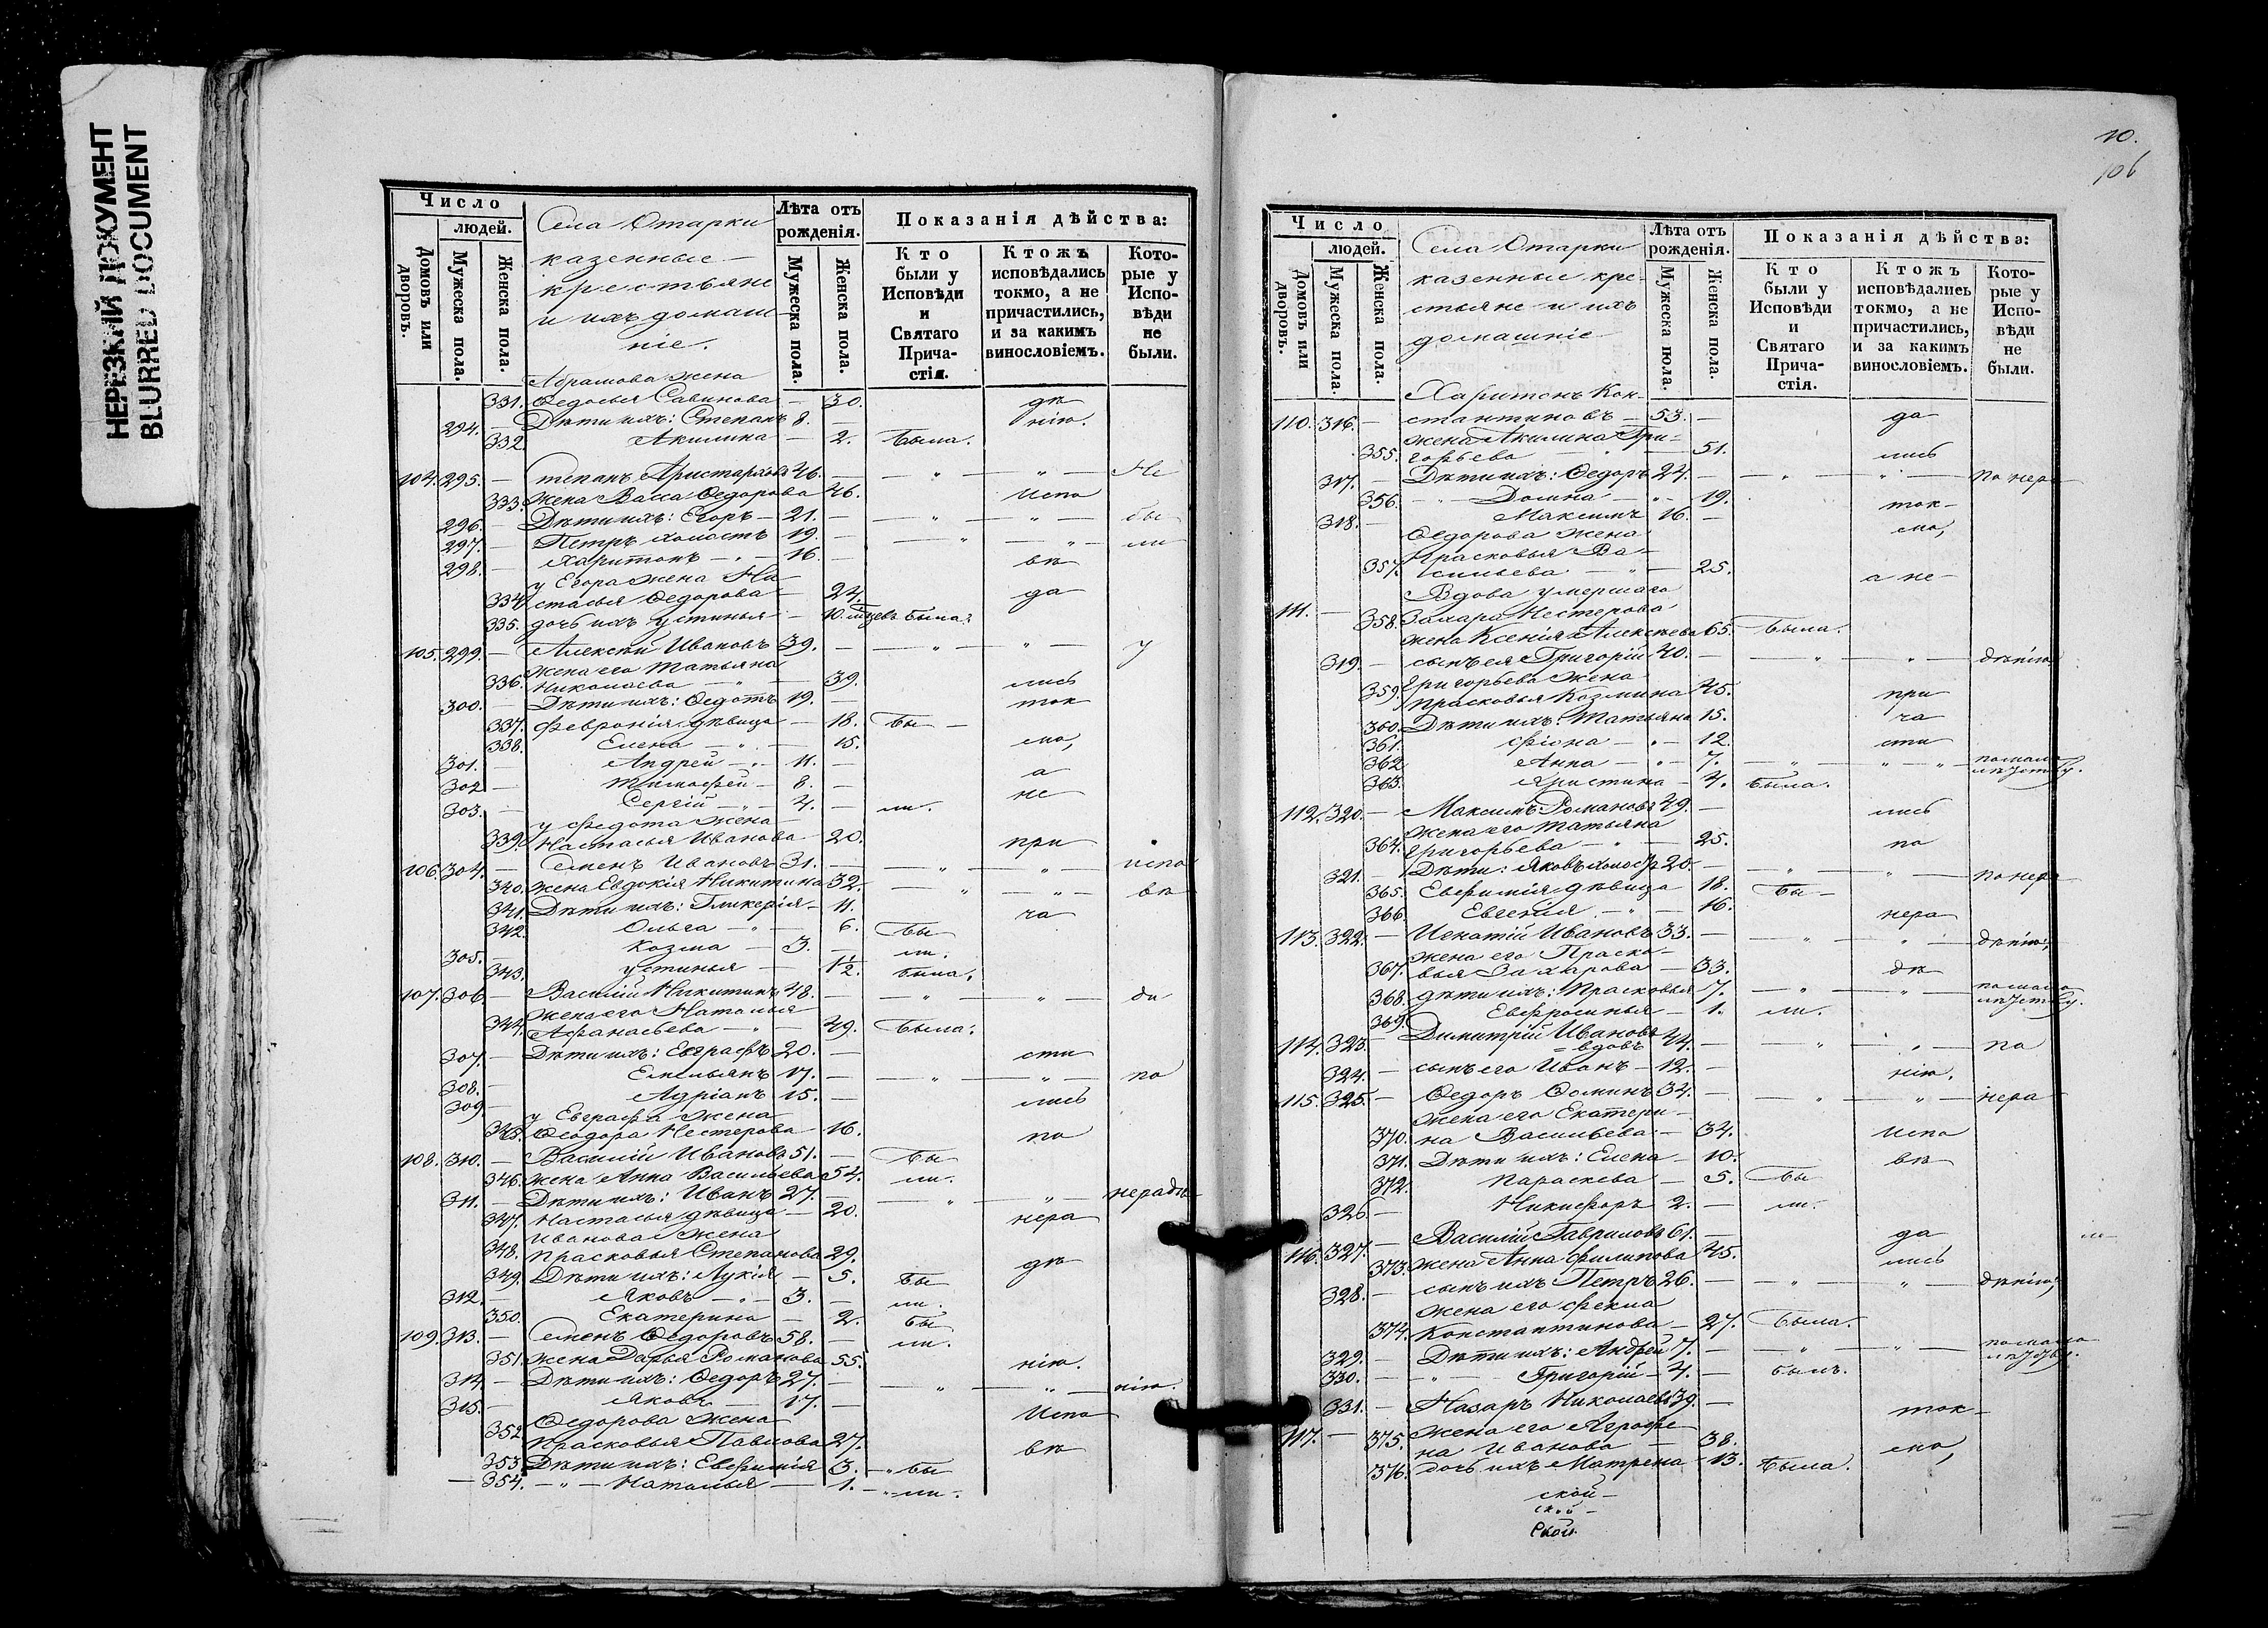 НЕРЕЗКИЙ ДОКУМЕНТ
BLURRED DOCUMENT
Число
людей.
Домовъ или дворовъ.
Мужеска пола.
Женска пола.
Села Отарки
казенные
крестьяне
и ихъ домаш
ніе.
Лѣта отъ рожденія.
Мужеска пола.
Женска пола.
Показанія дѣйства:
Кто были у Исповѣди и Святаго Прича-стія.
Ктожъ исповѣдались токмо, а не причастились, и за какимъ винословіемъ.
Кото-рые у Испо-вѣди не были.
Абрамова жена
331. Ѳедосья Савинова — 30. дѣ
294. — Дѣти ихъ: Степанъ 8. — нію.
332. Акилина — 2. была.
104. 295. — тепанъ Аристарховъ 46. — " — " — Не
333. жена Васса Ѳедорова 46. Испо
296. — Дѣти ихъ: Егоръ — 21. — " — " — бы
297. — Петръ холостъ 19. — " — " — ли
298. — Харитонъ — " — 16. вѣ
у Егора жена На
334. стасья Ѳедорова — 24. да
335. дочь ихъ Устинья — 10. мцевъ была.
105. 299. — Алексѣй Ивановъ 39. — " — " — у
жена его Татьяна
336. Николаева — " — 39. лись
300. — Дѣти ихъ: Ѳедотъ 19. — ток
337. Февронія дѣвица — 18. бы —
338. Елена — " — 15. мо,
301. — Андрей — " — 11. —
302 — Тимофей — 8. — а
303. — Сергій — " — 4. — ли. не
у Федота жена
339. Настасья Иванова — 20. при
106. 304. — еменъ Ивановъ 31. — " — " — испо
340. жена Евдокія Никитина 32. — " — " — вѣ
341. Дѣти ихъ: Гликерія — 11. ча
342. Ольга — " — 6. бы
305. — Козма — 3. — ли.
343. Устинья — 1½. была.
107. 306 — Василій Никитинъ 48. — " — " — ди
жена его Наталья
344. Афанасьева — " — 49. была.
307. — Дѣти ихъ: Евграфъ 20. — сти
308. — Емельянъ 17. — " — " — по
309 — Адріанъ 15. — лись
у Евграфа жена
345. Ѳеодора Нестерова — 16. по
108. 310. — Василій Ивановъ 51. — бы
346. жена Анна Васильева 54. ли.
311. — Дѣти ихъ: Иванъ 27. — " — " — нерадѣ
347. Настасья дѣвица — 20. нера
Иванова жена
348. Прасковья Степанова 29. дѣ
349. Дѣти ихъ: Лукія — 5. бы
312. — Яковъ — " — 3. — ли.
350. Екатерина — 2. бы
109. 313. — еменъ Ѳедоровъ 58. — ли.
351. жена Дарья Романова 55. нію.
314. — Дѣти ихъ: Ѳедоръ 27. — " — " — нію.
315. — Яковъ — 17. — Испо
Ѳедорова жена
352. Прасковья Павлова 27. вѣ
353. Дѣти ихъ: Евфимія 3. — бы
354. — " — Наталья — 1. — ли.
10.
106
Число
людей.
Домовъ или дворовъ.
Мужеска пола.
Женска пола.
Села Отарки
казенные кре-
стьяне и ихъ
домашніе
Лѣта отъ рожденія.
Мужеска пола.
Женска пола.
Показанія дѣйства:
Кто были у Исповѣди и Святаго Прича-стія.
Ктожъ исповѣдались токмо, а не причастились, и за какимъ винословіемъ.
Кото-рые у Испо-вѣди не были.
Харитонъ Кон-
110. 316. — стантиновъ — 53. — да
жена Акилина Гри-
355. горьева — 51. лись
317. — Дѣти ихъ: Ѳедоръ 24. — " — " — по нера
356. — " — Домна — " — 19. ток-
318. — Максимъ 16. — мо,
Ѳедорова жена
Прасковья Ва-
357. сильева — " — 25. а не —
Вдова умершаго
111. — 358. Захара Нестерова
жена Ксенія Алексѣева 65. была.
319. — сынъ ея Григорій 40. — " — " — дѣнію,
Григорьева жена
359. Прасковья Козмина 45. при
360. Дѣти ихъ: Татьяна 15. ча
361. Фіона — " — 12. сти
362. Анна — " — 7. — " — " — помало лѣтству.
363. Христина — 4. была.
112. 320. — Максимъ Романовъ 49. — лись
жена его Татьяна
364. Григорьева — " — 25. по
321. — Дѣти: Яковъ холост 20. — " — " — по нера
365. Евфимія дѣвица 18. бы —
366. Евгенія — " — 16. нера
113. 322. — Игнатій Ивановъ 33. — " — " — дѣнію,
жена его Праско-
367. вья Захарова — 33. дѣ
368. дѣти ихъ: Прасковья 7. — " — " — помало лѣтству.
369. Евфросинья — 1. ли.
114. 323. — Димитрій Ивановъ
= вдовъ 44. — " — " — по
324. — сынъ его Иванъ — 12. — нію.
115. 325. — Ѳедоръ Ѳоминъ 34. — " — " — нера
жена его Екатери-
370. на Васильева — 34. Испо
371. Дѣти ихъ: Елена — 10. вѣ
372. Параскева — 5. бы
326. — Никифоръ 2. — ли.
116. 327. — Василій Гавриловъ 61. — да
373. жена Анна Филипова 45. лись
328. — сынъ ихъ Петръ 26. — " — " — дѣнію,
жена его Фекла
374. Константинова — 27. была.
329. — Дѣти ихъ: Андрей 7. — " — " — помало лѣтству.
330. — " — Григорій — 4. — былъ.
331. — Назаръ Николаевъ 39. — ток-
117. — 375. жена его Агрофе
на Иванова — 38. мо,
376. дочь ихъ Матрена — 13. была.
ской —
ской —
Ской.